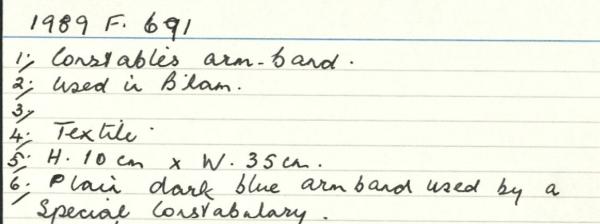 1989 F. 691
1; Constables arm-band.
2; Used in B'ham.
3;
4; Textile
5; H. 10 cm x W. 35 cm.
6; Plain dark blue armband used by a
Special Constabulary.